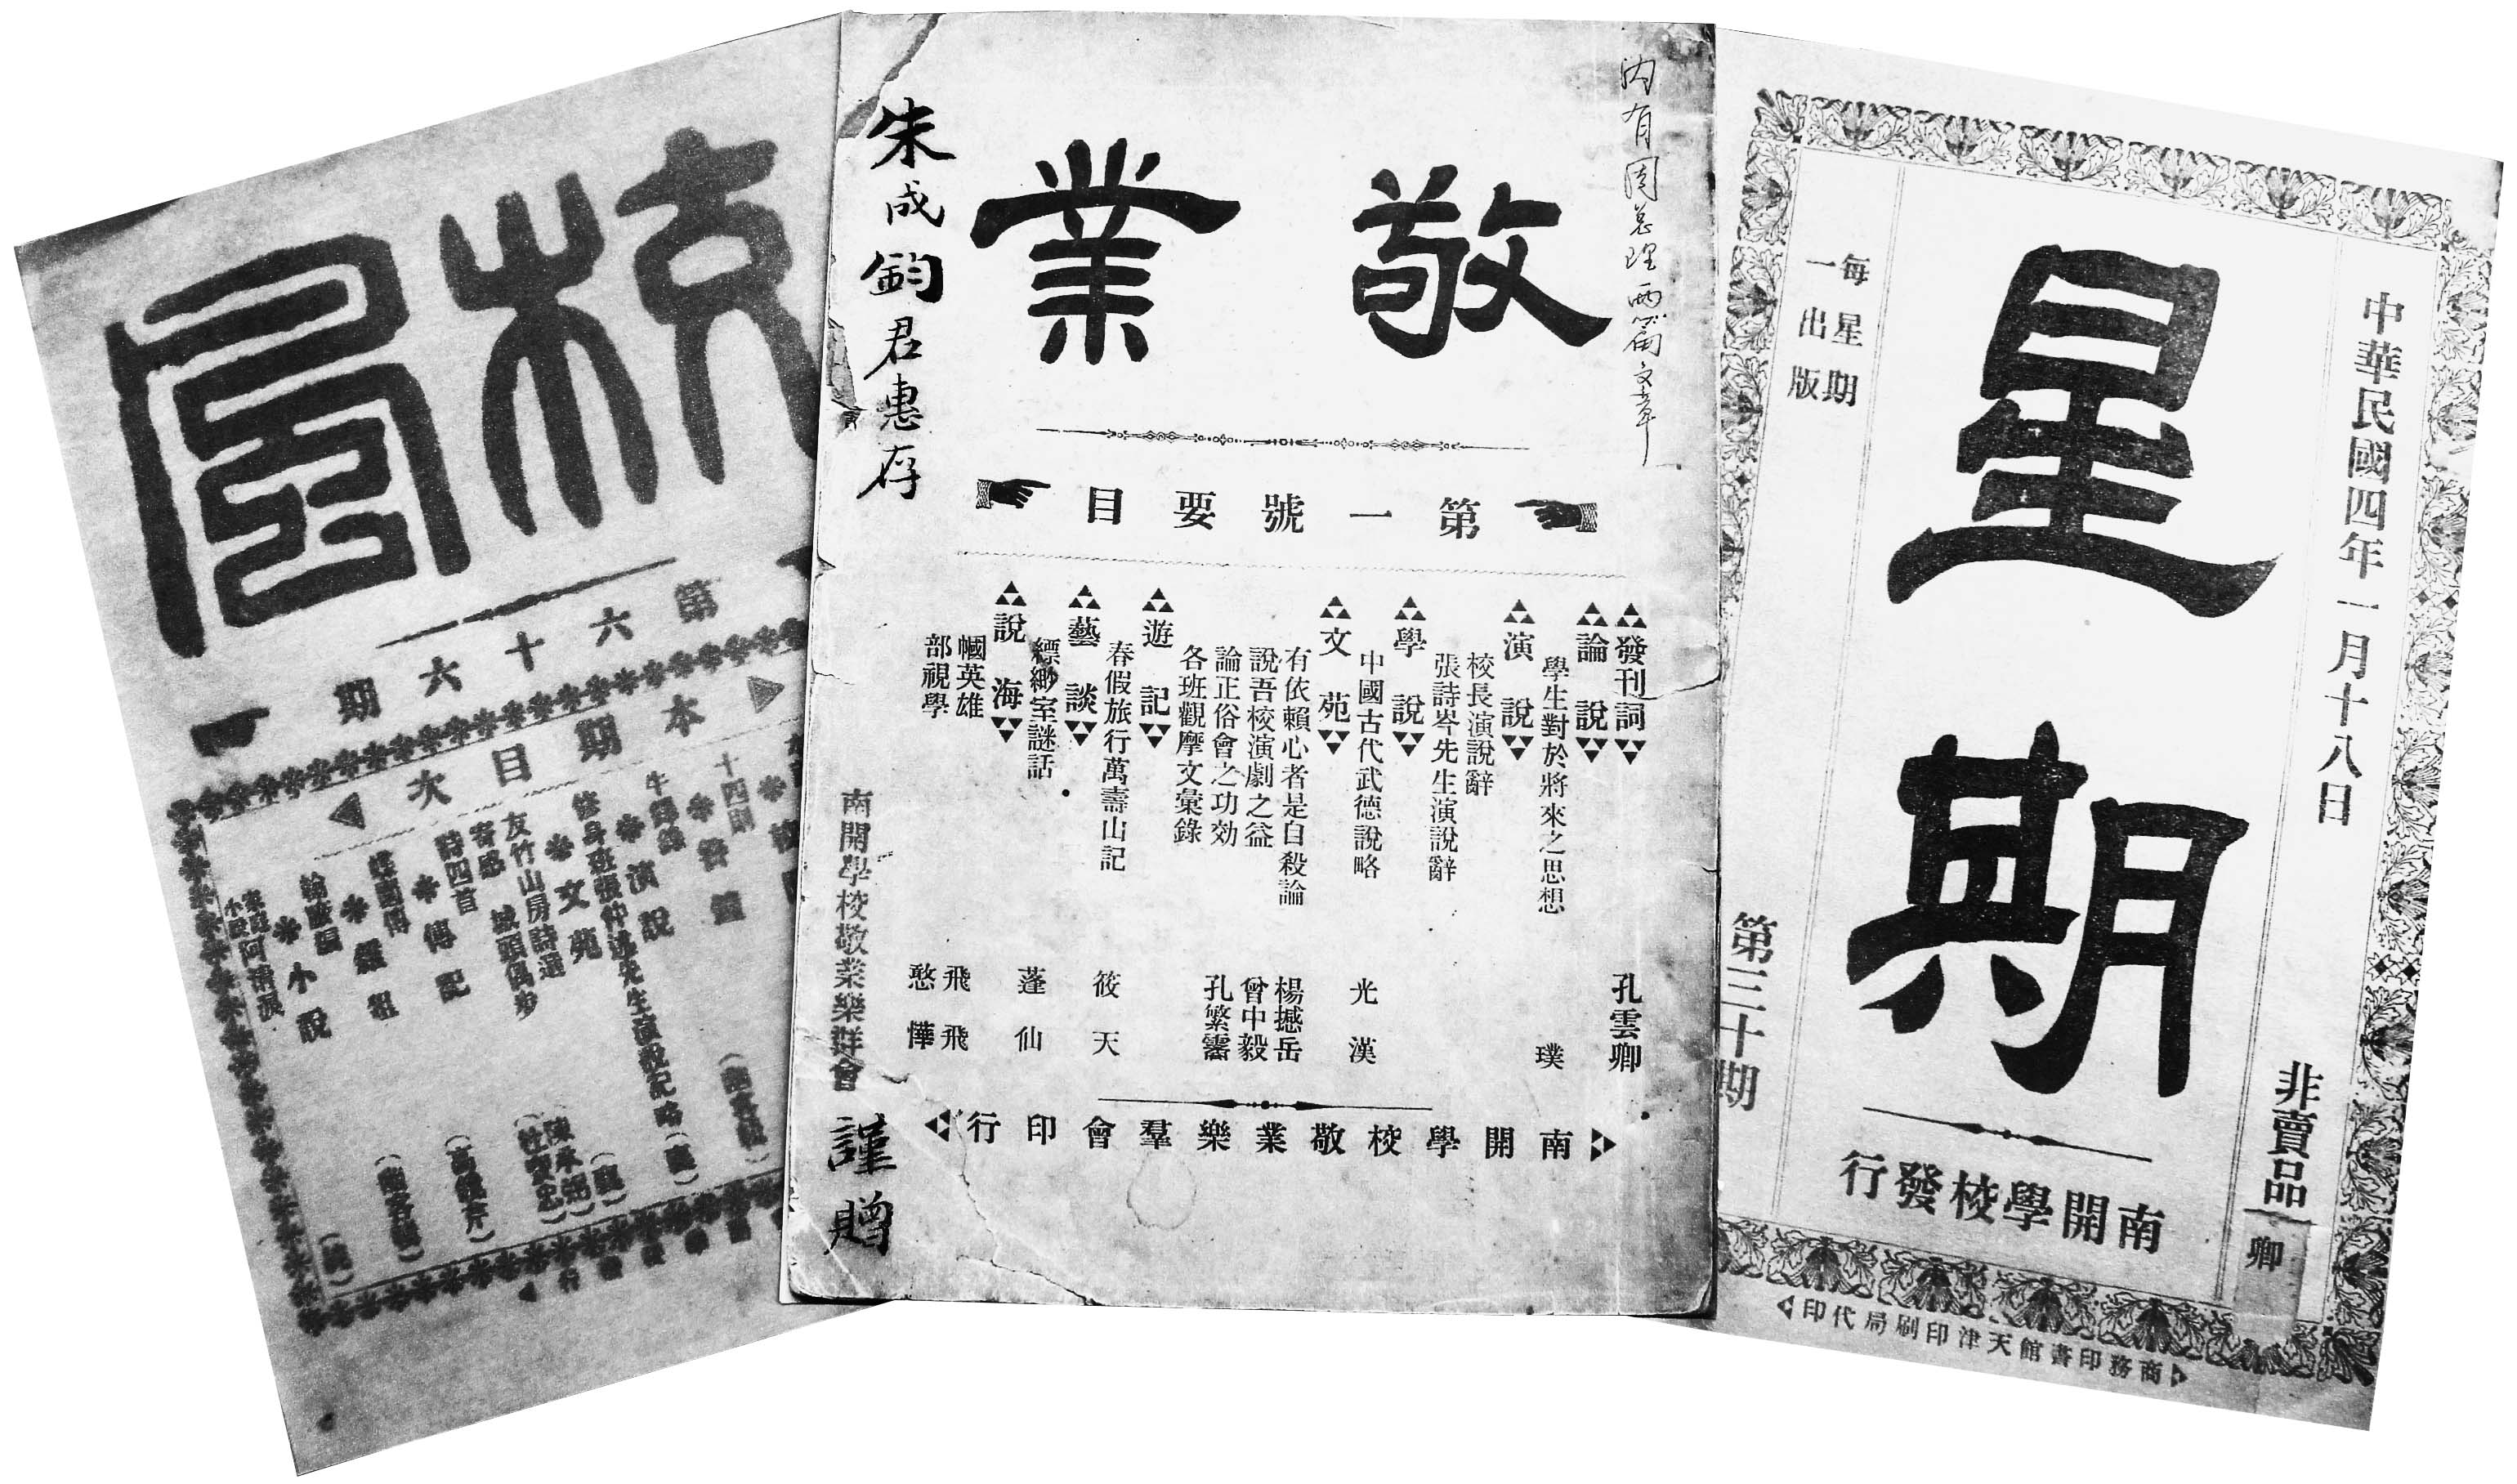 校風
第六十六期
本期目次
十四則
演說
修身班張仲述先生演說紀略
文苑
友竹山房詩選
城頭偶步
寄感
詩四首
傳記
小說
敬業
內有周总理两篇文章
朱成鈞君惠存
第一號要目
發刊詞 孔雲卿
論說
學生對於將來之思想 璞
演說
校長演說辭
張詩岑先生演說辭
學說
中國古代武德說略 光漢
文苑
有依賴心者是自殺論 楊撼岳
說吾校演劇之益 曾中毅
論正俗會之功効 孔繁霱
各班觀摩文彙錄
遊記
春假旅行萬壽山記 筱天
藝談
縹緲室謎話 蓬仙
說海
幗英雄 飛飛
部視學 憨憚
南開學校敬業樂群會
謹贈
南開學校敬業樂羣會印行
中華民國四年一月十八日
非賣品
卿
星期
南開學校發行
每星期
一出版
第三十期
商務印書館天津印刷局代印